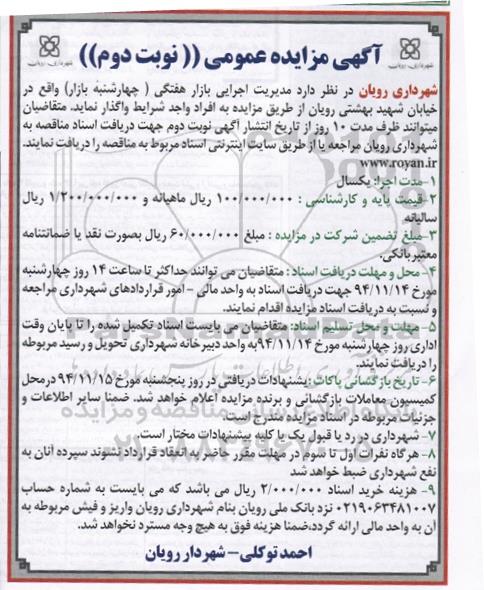 آگهی مزایده عمومی (( نوبت دوم))
شهرداری رویان
شهرداری رویان
شهرداری رویان در نظر دارد مدیریت اجرایی بازار هفتگی ( چهارشنبه بازار) واقع در
خیابان شهید بهشتی رویان از طریق مزایده به افراد واجد شرایط واگذار نماید. متقاضیان
میتوانند ظرف مدت ۱۰ روز از تاریخ انتشار آگهی نوبت دوم جهت دریافت اسناد مناقصه به
شهرداری رویان مراجعه یا از طریق سایت اینترنتی اسناد مربوط به مناقصه را دریافت نمایند.
www.royan.ir
۱-مدت اجرا: یکسال
۲-قیمت پایه و کارشناسی : ۱۰۰/۰۰۰/۰۰۰ ریال ماهیانه و ۱/۲۰۰/۰۰۰/۰۰۰ ریال
سالیانه
۳-مبلغ تضمین شرکت در مزایده : مبلغ ۶۰/۰۰۰/۰۰۰ ریال بصورت نقد یا ضمانتنامه
معتبربانکی.
۴- محل و مهلت دریافت اسناد : متقاضیان می توانند حداکثر تا ساعت ۱۴ روز چهارشنبه
مورخ ۹۴/۱۱/۱۴ جهت دریافت اسناد به واحد مالی - امور قراردادهای شهرداری مراجعه
و نسبت به دریافت اسناد مزایده اقدام نمایند.
۵- مهلت و محل تسلیم اسناد: متقاضیان می بایست اسناد تکمیل شده را تا پایان وقت
اداری روز چهارشنبه مورخ ۹۴/۱۱/۱۴به واحد دبیرخانه شهرداری تحویل و رسید مربوطه
را دریافت نمایند.
۶- تاریخ بازگشائی پاکات :پیشنهادات دریافتی در روز پنجشنبه مورخ ۹۴/۱۱/۱۵ درمحل
کمیسیون معاملات بازگشائی و برنده مزایده اعلام خواهد شد. ضمنا سایر اطلاعات و
جزئیات مربوطه در اسناد مزایده مندرج است.
۷- شهرداری در رد یا قبول یک یا کلیه پیشنهادات مختار است.
۸- هرگاه نفرات اول تا سوم در مهلت مقرر حاضر به انعقاد قرارداد نشوند سپرده آنان به
نفع شهرداری ضبط خواهد شد
۹- هزینه خرید اسناد ۲/۰۰۰/۰۰۰ ریال می باشد که می بایست به شماره حساب
۰۲۱۹۰۶۳۴۸۱۰۰۷ نزد بانک ملی رویان بنام شهرداری رویان واریز و فیش مربوطه به
آن به واحد مالی ارائه گردد،ضمنا هزینه فوق به هیچ وجه مسترد نخواهد شد.
احمد توکلی- شهردار رویان